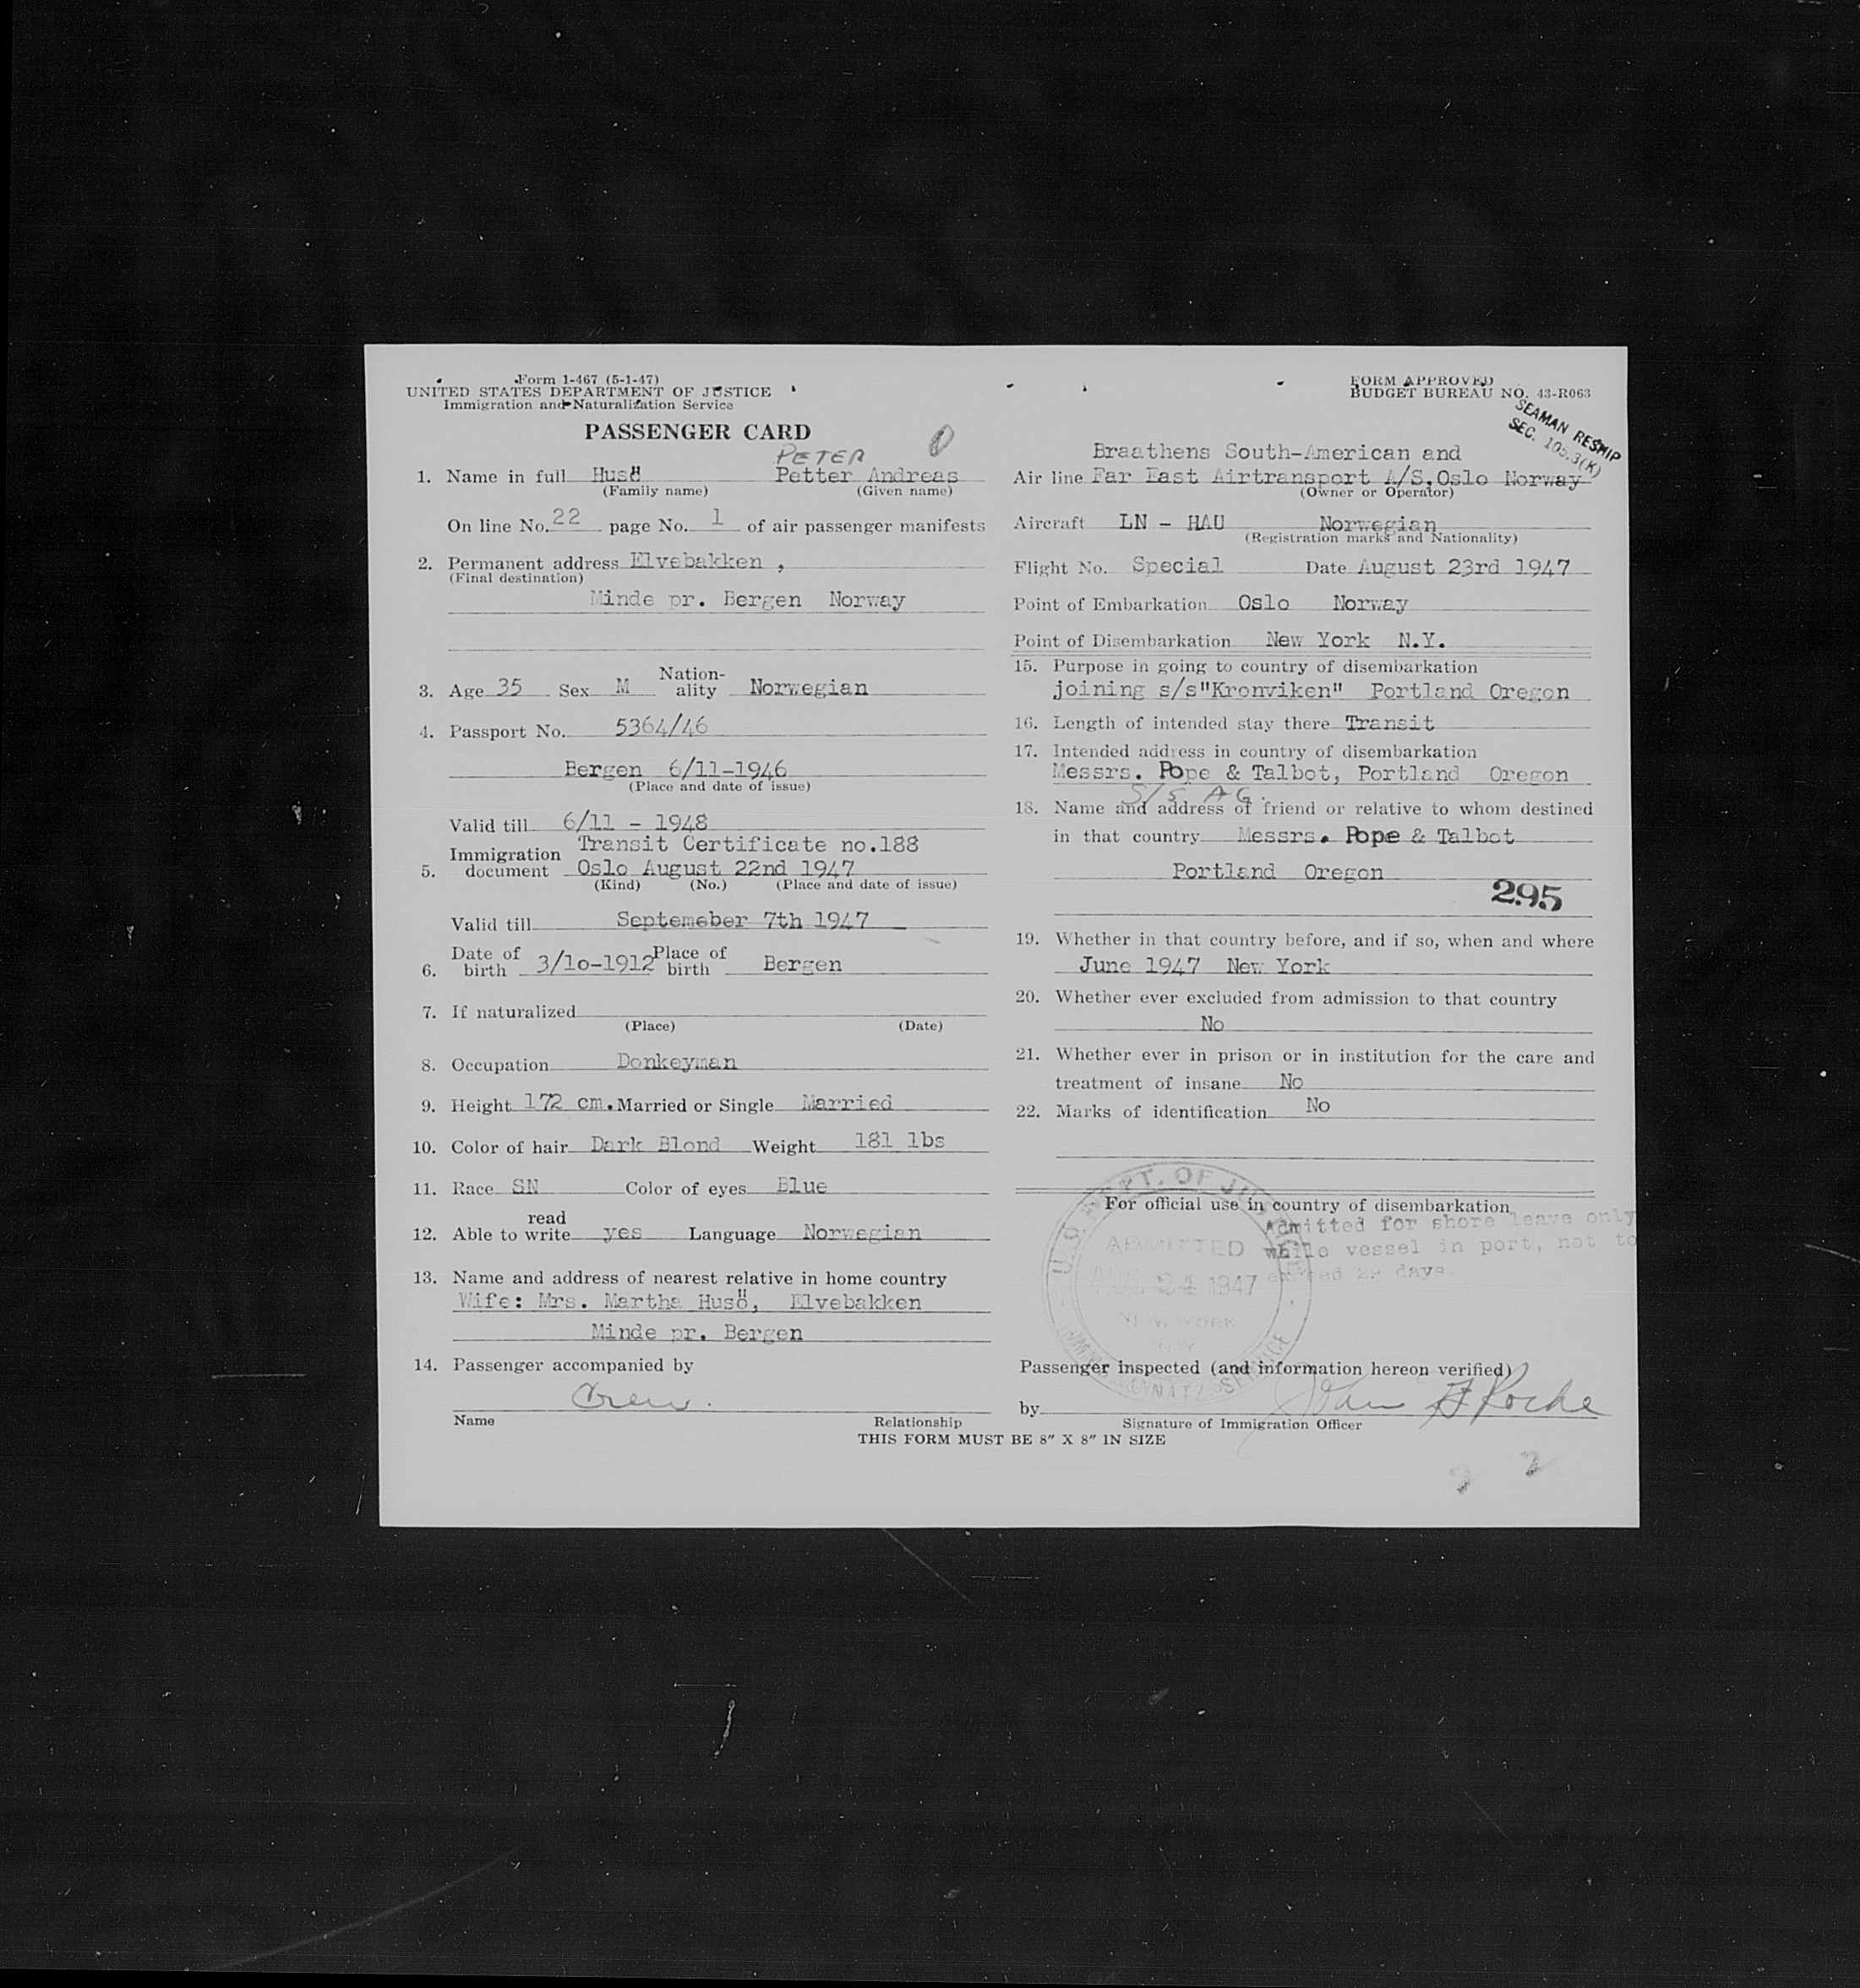 Form I-467 (5-1-47)
UNITED STATES DEPARTMENT OF JUSTICE
Immigration and Naturalization Service
PASSENGER CARD
PETER
1. Name in full Husö Petter Andreas
(Family name) (Given name)
On line No. 22 page No. 1 of air passenger manifests
2. Permanent address Elvebakken ,
(Final destination)
Minde pr. Bergen Norway
3. Age 35 Sex M Nation-
ality Norwegian
4. Passport No. 5364/46
Bergen 6/11-1946
(Place and date of issue)
Valid till 6/11 - 1948
Transit Certificate no.188
5. Immigration
document Oslo August 22nd 1947
(Kind) (No.) (Place and date of issue)
Valid till Septemeber 7th 1947
6. Date of
birth 3/10-1912 Place of
birth Bergen
7. If naturalized
(Place) (Date)
8. Occupation Donkeyman
9. Height 172 cm. Married or Single Married
10. Color of hair Dark Blond Weight 181 lbs
11. Race SN Color of eyes Blue
12. Able to read
write yes Language Norwegian
13. Name and address of nearest relative in home country
Wife: Mrs. Martha Husö, Elvebakken
Minde pr. Bergen
14. Passenger accompanied by
Crew.
Name Relationship
FORM APPROVED
BUDGET BUREAU NO. 43-R063
SEAMAN RESHIP
SEC. 105.3(K)
Braathens South-American and
Air line Far East Airtransport A/S, Oslo Norway
(Owner or Operator)
Aircraft LN - HAU Norwegian
(Registration marks and Nationality)
Flight No. Special Date August 23rd 1947
Point of Embarkation Oslo Norway
Point of Disembarkation New York N.Y.
15. Purpose in going to country of disembarkation
joining s/s"Kronviken" Portland Oregon
16. Length of intended stay there Transit
17. Intended address in country of disembarkation
Messrs. Pope & Talbot, Portland Oregon
S/S AG.
18. Name and address of friend or relative to whom destined
in that country Messrs. Pope & Talbot
Portland Oregon
295
19. Whether in that country before, and if so, when and where
June 1947 New York
20. Whether ever excluded from admission to that country
No
21. Whether ever in prison or in institution for the care and
treatment of insane No
22. Marks of identification No
For official use in country of disembarkation
Admitted for shore leave only
while vessel in port, not to
exceed 29 days.
U.S. DEPT. OF JUSTICE
ADMITTED
AUG 24 1947
NEW YORK
N.Y.
Passenger inspected (and information hereon verified)
by John F Roche
Signature of Immigration Officer
THIS FORM MUST BE 8" X 8" IN SIZE